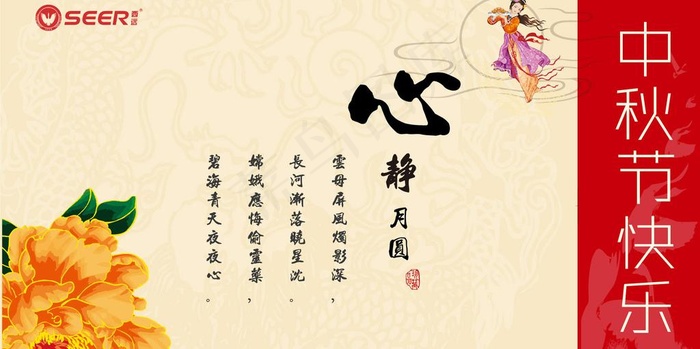 SEER
心
静
月
圓
雲母屏風燭影深，
長河漸落曉星沈。
嫦娥應悔偷靈藥，
碧海青天夜夜心。
中秋节快乐